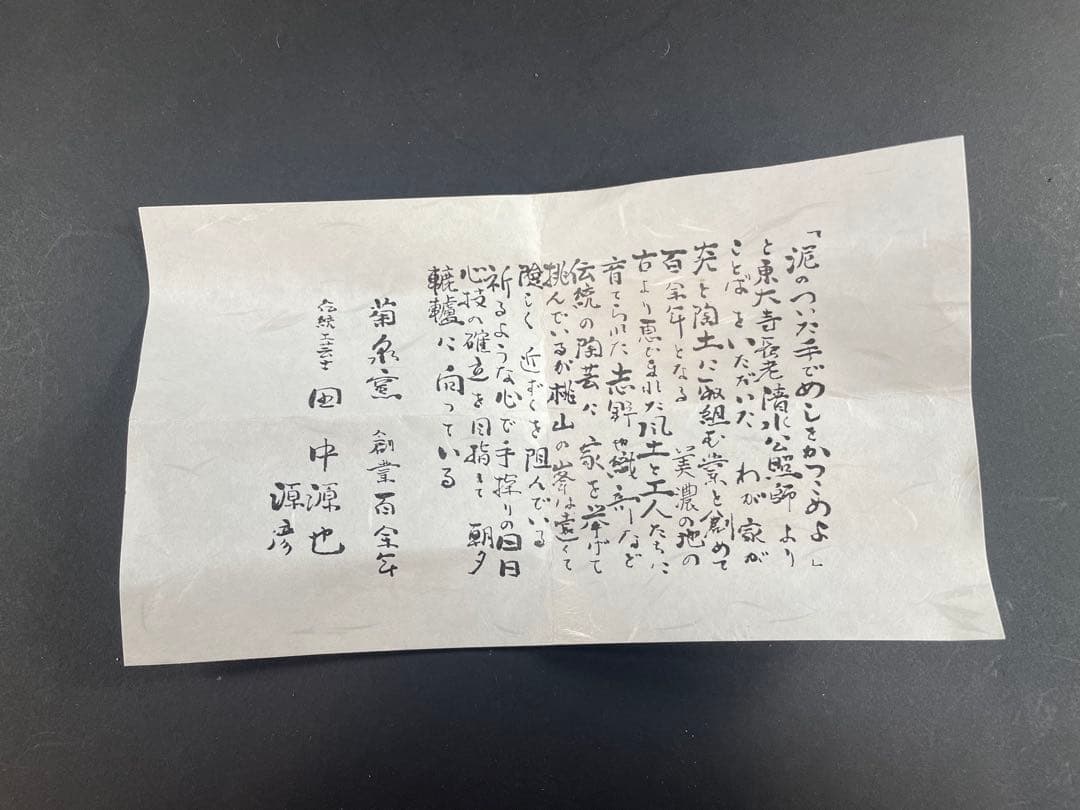 「泥のついた手でめしをかっこめよ」
と東大寺長老清水公照師より
ことばをいただいた わが家が
炎と陶土に取組む業を創めて
百余年となる 美濃の地の
古より恵まれた風土と工人たちに
育てられた志野や織部など
伝統の陶芸に家を挙げて
挑んでいるが桃山の峯は遠くて
険しく近ずくを阻んでいる
祈るような心で手探りの日日
心技の確立を目指して朝夕
轆轤に向っている
菊泉窯 創業百余年
伝統工芸士 田中源也
源彦